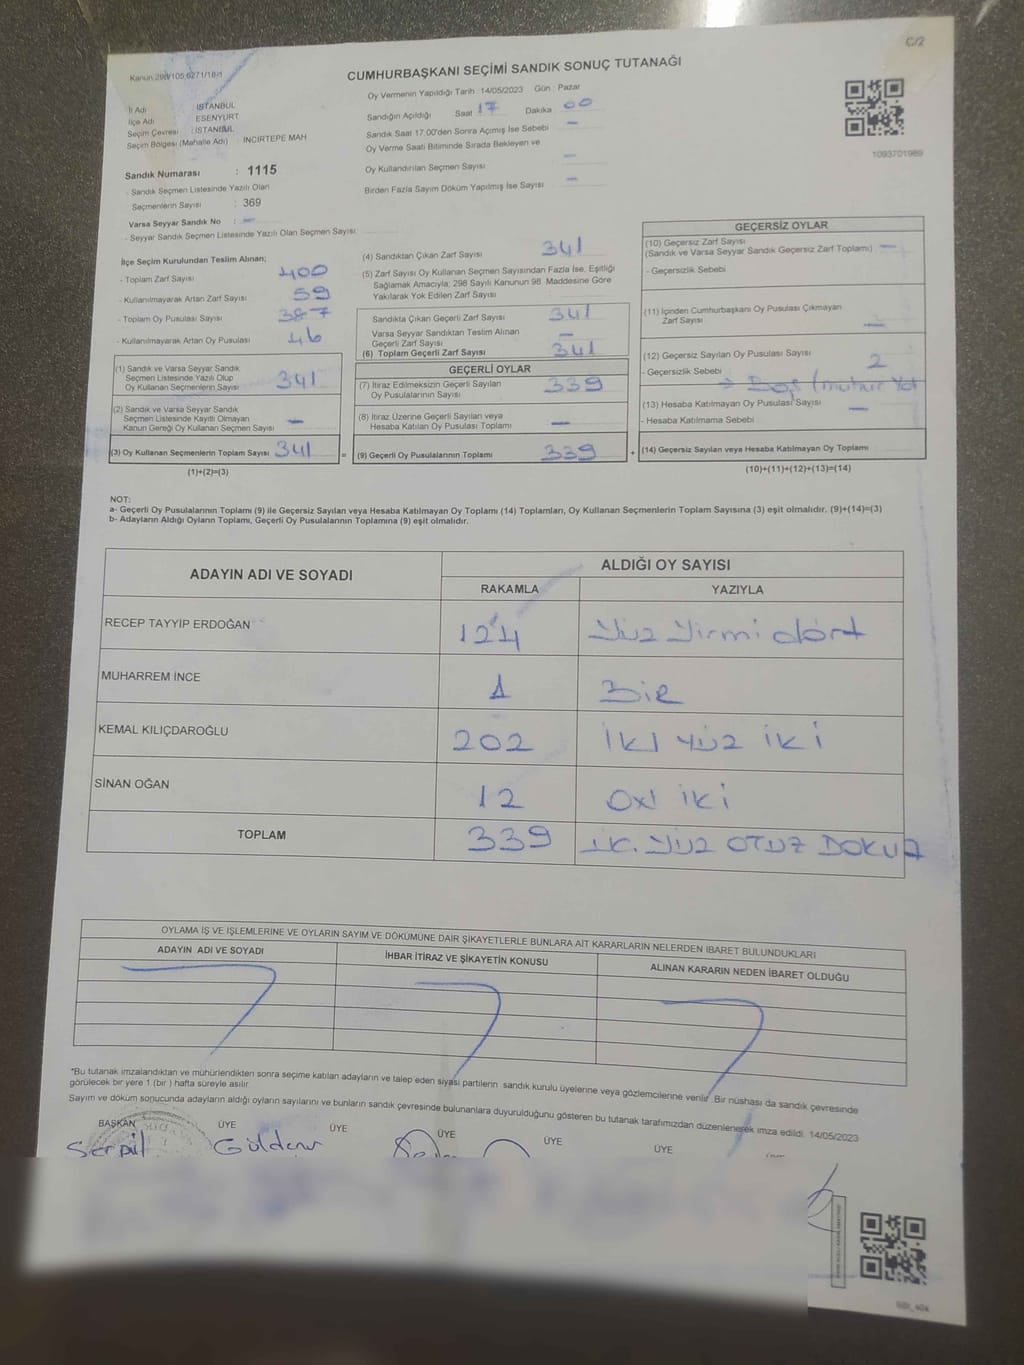 C/2
Kanun 298/105,6271/18-1
CUMHURBAŞKANI SEÇİMİ SANDIK SONUÇ TUTANAĞI
İl Adı : İSTANBUL
İlçe Adı : ESENYURT
Seçim Çevresi : İSTANBUL
Seçim Bölgesi (Mahalle Adı) : İNCİRTEPE MAH
Oy Vermenin Yapıldığı Tarih : 14/05/2023 Gün : Pazar
Sandığın Açıldığı Saat 17 Dakika 00
Sandık Saat 17.00'den Sonra Açımış İse Sebebi —
Oy Verme Saati Bitiminde Sırada Bekleyen ve
Oy Kullandırılan Seçmen Sayısı —
Birden Fazla Sayım Döküm Yapılmış İse Sayısı —
1093701989
Sandık Numarası : 1115
- Sandık Seçmen Listesinde Yazılı Olan
Seçmenlerin Sayısı : 369
Varsa Seyyar Sandık No : —
- Seyyar Sandık Seçmen Listesinde Yazılı Olan Seçmen Sayısı:
İlçe Seçim Kurulundan Teslim Alınan;
- Toplam Zarf Sayısı 400
- Kullanılmayarak Artan Zarf Sayısı 59
- Toplam Oy Pusulası Sayısı 387
- Kullanılmayarak Artan Oy Pusulası 46
(1) Sandık ve Varsa Seyyar Sandık
Seçmen Listesinde Yazılı Olup
Oy Kullanan Seçmenlerin Sayısı 341
(2) Sandık ve Varsa Seyyar Sandık
Seçmen Listesinde Kayıtlı Olmayan
Kanun Gereği Oy Kullanan Seçmen Sayısı —
(3) Oy Kullanan Seçmenlerin Toplam Sayısı 341
(1)+(2)=(3)
=
(4) Sandıktan Çıkan Zarf Sayısı 341
(5) Zarf Sayısı Oy Kullanan Seçmen Sayısından Fazla İse, Eşitliği
Sağlamak Amacıyla; 298 Sayılı Kanunun 98. Maddesine Göre
Yakılarak Yok Edilen Zarf Sayısı
Sandıkta Çıkan Geçerli Zarf Sayısı 341
Varsa Seyyar Sandıktan Teslim Alınan
Geçerli Zarf Sayısı —
(6) Toplam Geçerli Zarf Sayısı 341
GEÇERLİ OYLAR
(7) İtiraz Edilmeksizin Geçerli Sayılan
Oy Pusulalarının Sayısı 339
(8) İtiraz Üzerine Geçerli Sayılan veya
Hesaba Katılan Oy Pusulası Toplamı —
(9) Geçerli Oy Pusulalarının Toplamı 339
+
GEÇERSİZ OYLAR
(10) Geçersiz Zarf Sayısı
(Sandık ve Varsa Seyyar Sandık Geçersiz Zarf Toplamı) —
- Geçersizlik Sebebi
(11) İçinden Cumhurbaşkanı Oy Pusulası Çıkmayan
Zarf Sayısı —
(12) Geçersiz Sayılan Oy Pusulası Sayısı 2
- Geçersizlik Sebebi → Boş (mühür yok
(13) Hesaba Katılmayan Oy Pusulası Sayısı —
- Hesaba Katılmama Sebebi
(14) Geçersiz Sayılan veya Hesaba Katılmayan Oy Toplamı
(10)+(11)+(12)+(13)=(14)
NOT:
a- Geçerli Oy Pusulalarının Toplamı (9) ile Geçersiz Sayılan veya Hesaba Katılmayan Oy Toplamı (14) Toplamları, Oy Kullanan Seçmenlerin Toplam Sayısına (3) eşit olmalıdır. (9)+(14)=(3)
b- Adayların Aldığı Oyların Toplamı, Geçerli Oy Pusulalarının Toplamına (9) eşit olmalıdır.
ADAYIN ADI VE SOYADI
ALDIĞI OY SAYISI
RAKAMLA YAZIYLA
RECEP TAYYİP ERDOĞAN 124 Yüz Yirmi dört
MUHARREM İNCE 1 BİR
KEMAL KILIÇDAROĞLU 202 İKİ YÜZ İKİ
SİNAN OĞAN 12 ON İKİ
TOPLAM 339 YÜZ OTUZ DOKUZ
OYLAMA İŞ VE İŞLEMLERİNE VE OYLARIN SAYIM VE DÖKÜMÜNE DAİR ŞİKAYETLERLE BUNLARA AİT KARARLARIN NELERDEN İBARET BULUNDUKLARI
ADAYIN ADI VE SOYADI
İHBAR İTİRAZ VE ŞİKAYETİN KONUSU
ALINAN KARARIN NEDEN İBARET OLDUĞU
*Bu tutanak imzalandıktan ve mühürlendikten sonra seçime katılan adayların ve talep eden siyasi partilerin sandık kurulu üyelerine veya gözlemcilerine verilir. Bir nüshası da sandık çevresinde
görülecek bir yere 1 (bir ) hafta süreyle asılır.
Sayım ve döküm sonucunda adayların aldığı oyların sayılarını ve bunların sandık çevresinde bulunanlara duyurulduğunu gösteren bu tutanak tarafımızdan düzenlenerek imza edildi. 14/05/2023
BAŞKAN ÜYE ÜYE ÜYE ÜYE ÜYE
Serpil